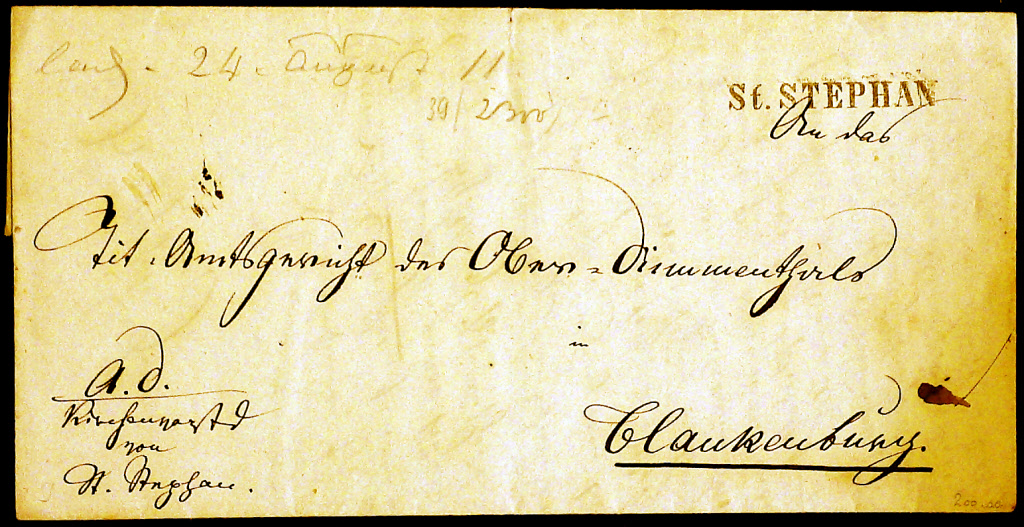 24. August 11.
St. STEPHAN
An das
Tit. Amtsgericht des Ober=Simmenthals
in
Blankenburg.
A. d.
Kirchenvorstd
von
St. Stephan.
200.00